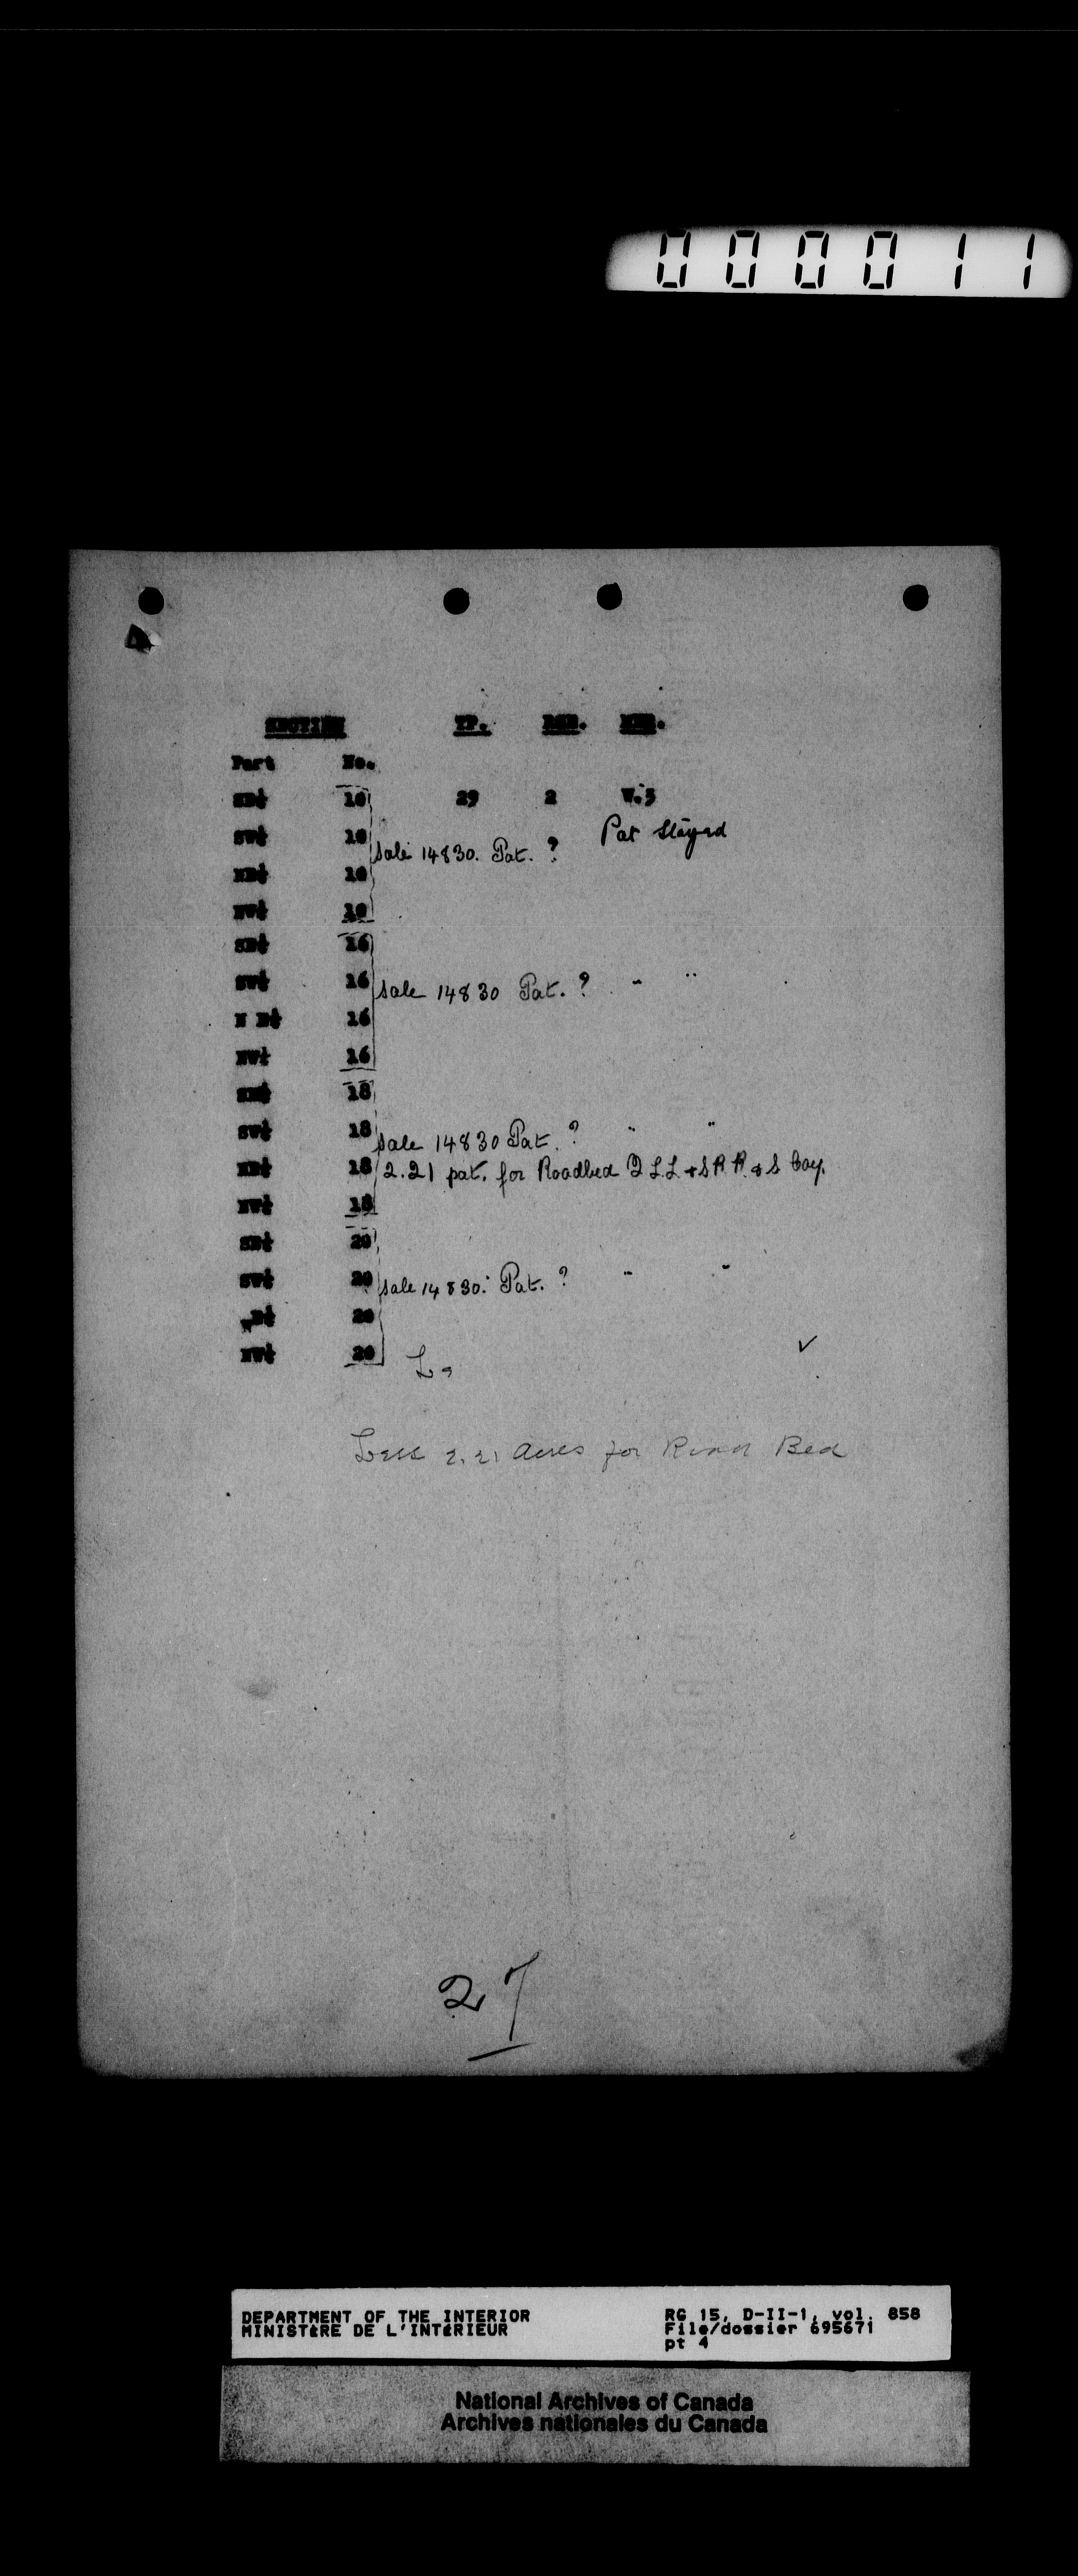 000011
SECTION TP. RGE. MER.
Part No.
SE¼ 10 29 2 W.5
Pat Stayed
SW¼ 10
sale 14830. Pat. ?
NE¼ 10
NW¼ 10
SE¼ 16
SW¼ 16 sale 14830 Pat. ? " "
N E¼ 16
NW¼ 16
SE¼ 18
SW¼ 18 sale 14830 Pat. ? " "
NE¼ 18 2.21 pat. for Roadbed Q L.L. & S R. R. & S Coy.
NW¼ 18
SE¼ 20
SW¼ 20 sale 14830. Pat. ? " "
NE¼ 20
NW¼ 20
Less 2.21 acres for Road Bed
27
DEPARTMENT OF THE INTERIOR
MINISTÈRE DE L'INTÉRIEUR
RG 15, D-II-1, vol. 858
File/dossier 695671
pt 4
National Archives of Canada
Archives nationales du Canada